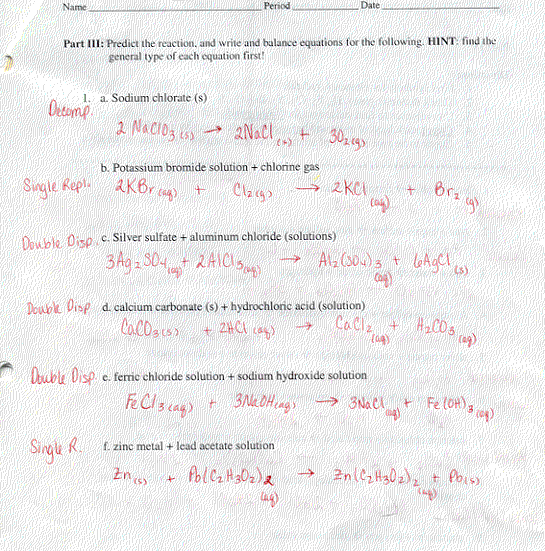 Name Period Date
Part III: Predict the reaction, and write and balance equations for the following. HINT: find the
general type of each equation first!
1. a. Sodium chlorate (s)
Decomp.
2 NaClO3 (s) → 2NaCl (s) + 3O2 (g)
b. Potassium bromide solution + chlorine gas
Single Repl. 2KBr (aq) + Cl2 (g) → 2KCl (aq) + Br2 (g)
Double Disp. c. Silver sulfate + aluminum chloride (solutions)
3Ag2SO4 (aq) + 2AlCl3 (aq) → Al2(SO4)3 (aq) + 6AgCl (s)
Double Disp d. calcium carbonate (s) + hydrochloric acid (solution)
CaCO3 (s) + 2HCl (aq) → CaCl2 (aq) + H2CO3 (aq)
Double Disp. e. ferric chloride solution + sodium hydroxide solution
FeCl3 (aq) + 3NaOH (aq) → 3NaCl (aq) + Fe(OH)3 (aq)
Single R. f. zinc metal + lead acetate solution
Zn (s) + Pb(C2H3O2)2 (aq) → Zn(C2H3O2)2 (aq) + Pb (s)